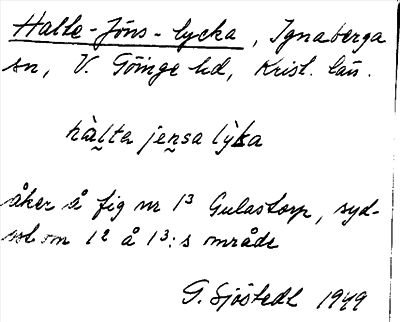 Halte-Jöns-lycka, Ignaberga
sn, V. Göinge hd, Krist. län.
hàlta jensa lỳka
åker å fig nr 1³ Gulastorp, syd-
vst om 1² å 1³:s område
G. Sjöstedt 1949